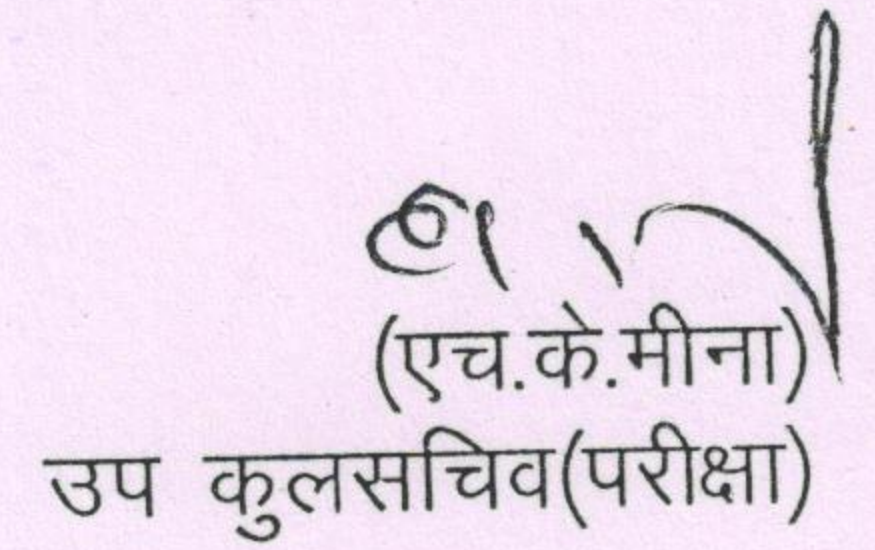 (एच.के.मीना)
उप कुलसचिव(परीक्षा)